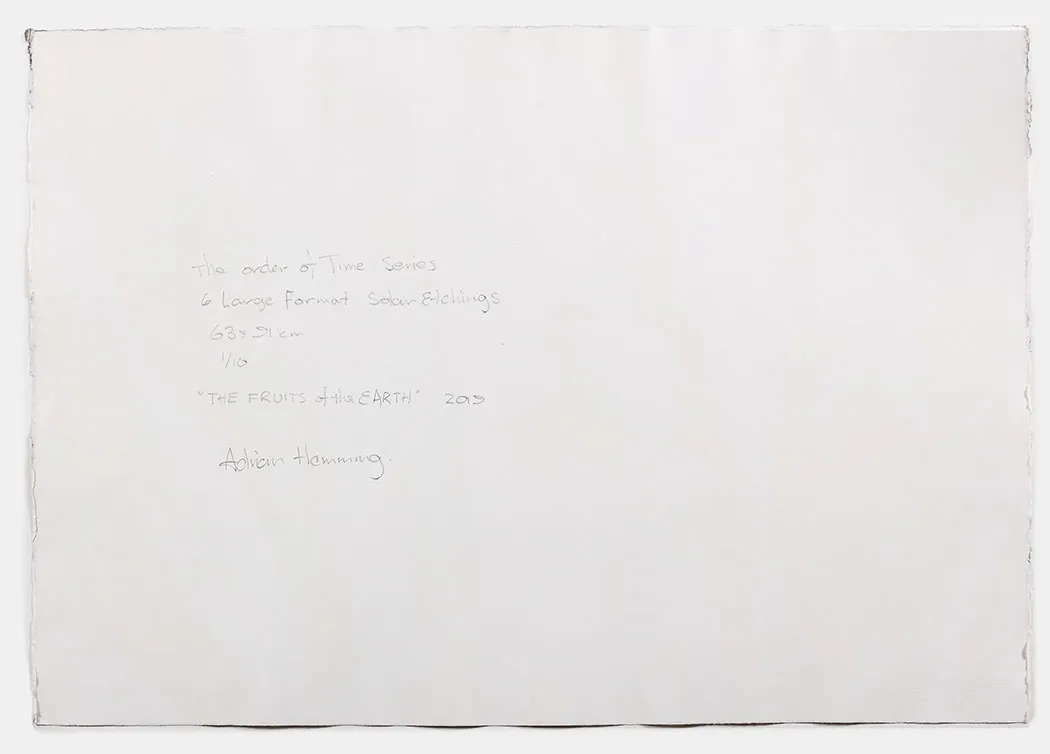 The order of Time Series
6 Large Format Solar Etchings
63 x 91 cm
1/10
"THE FRUITS of the EARTH" 2019
Adrian Hemming.